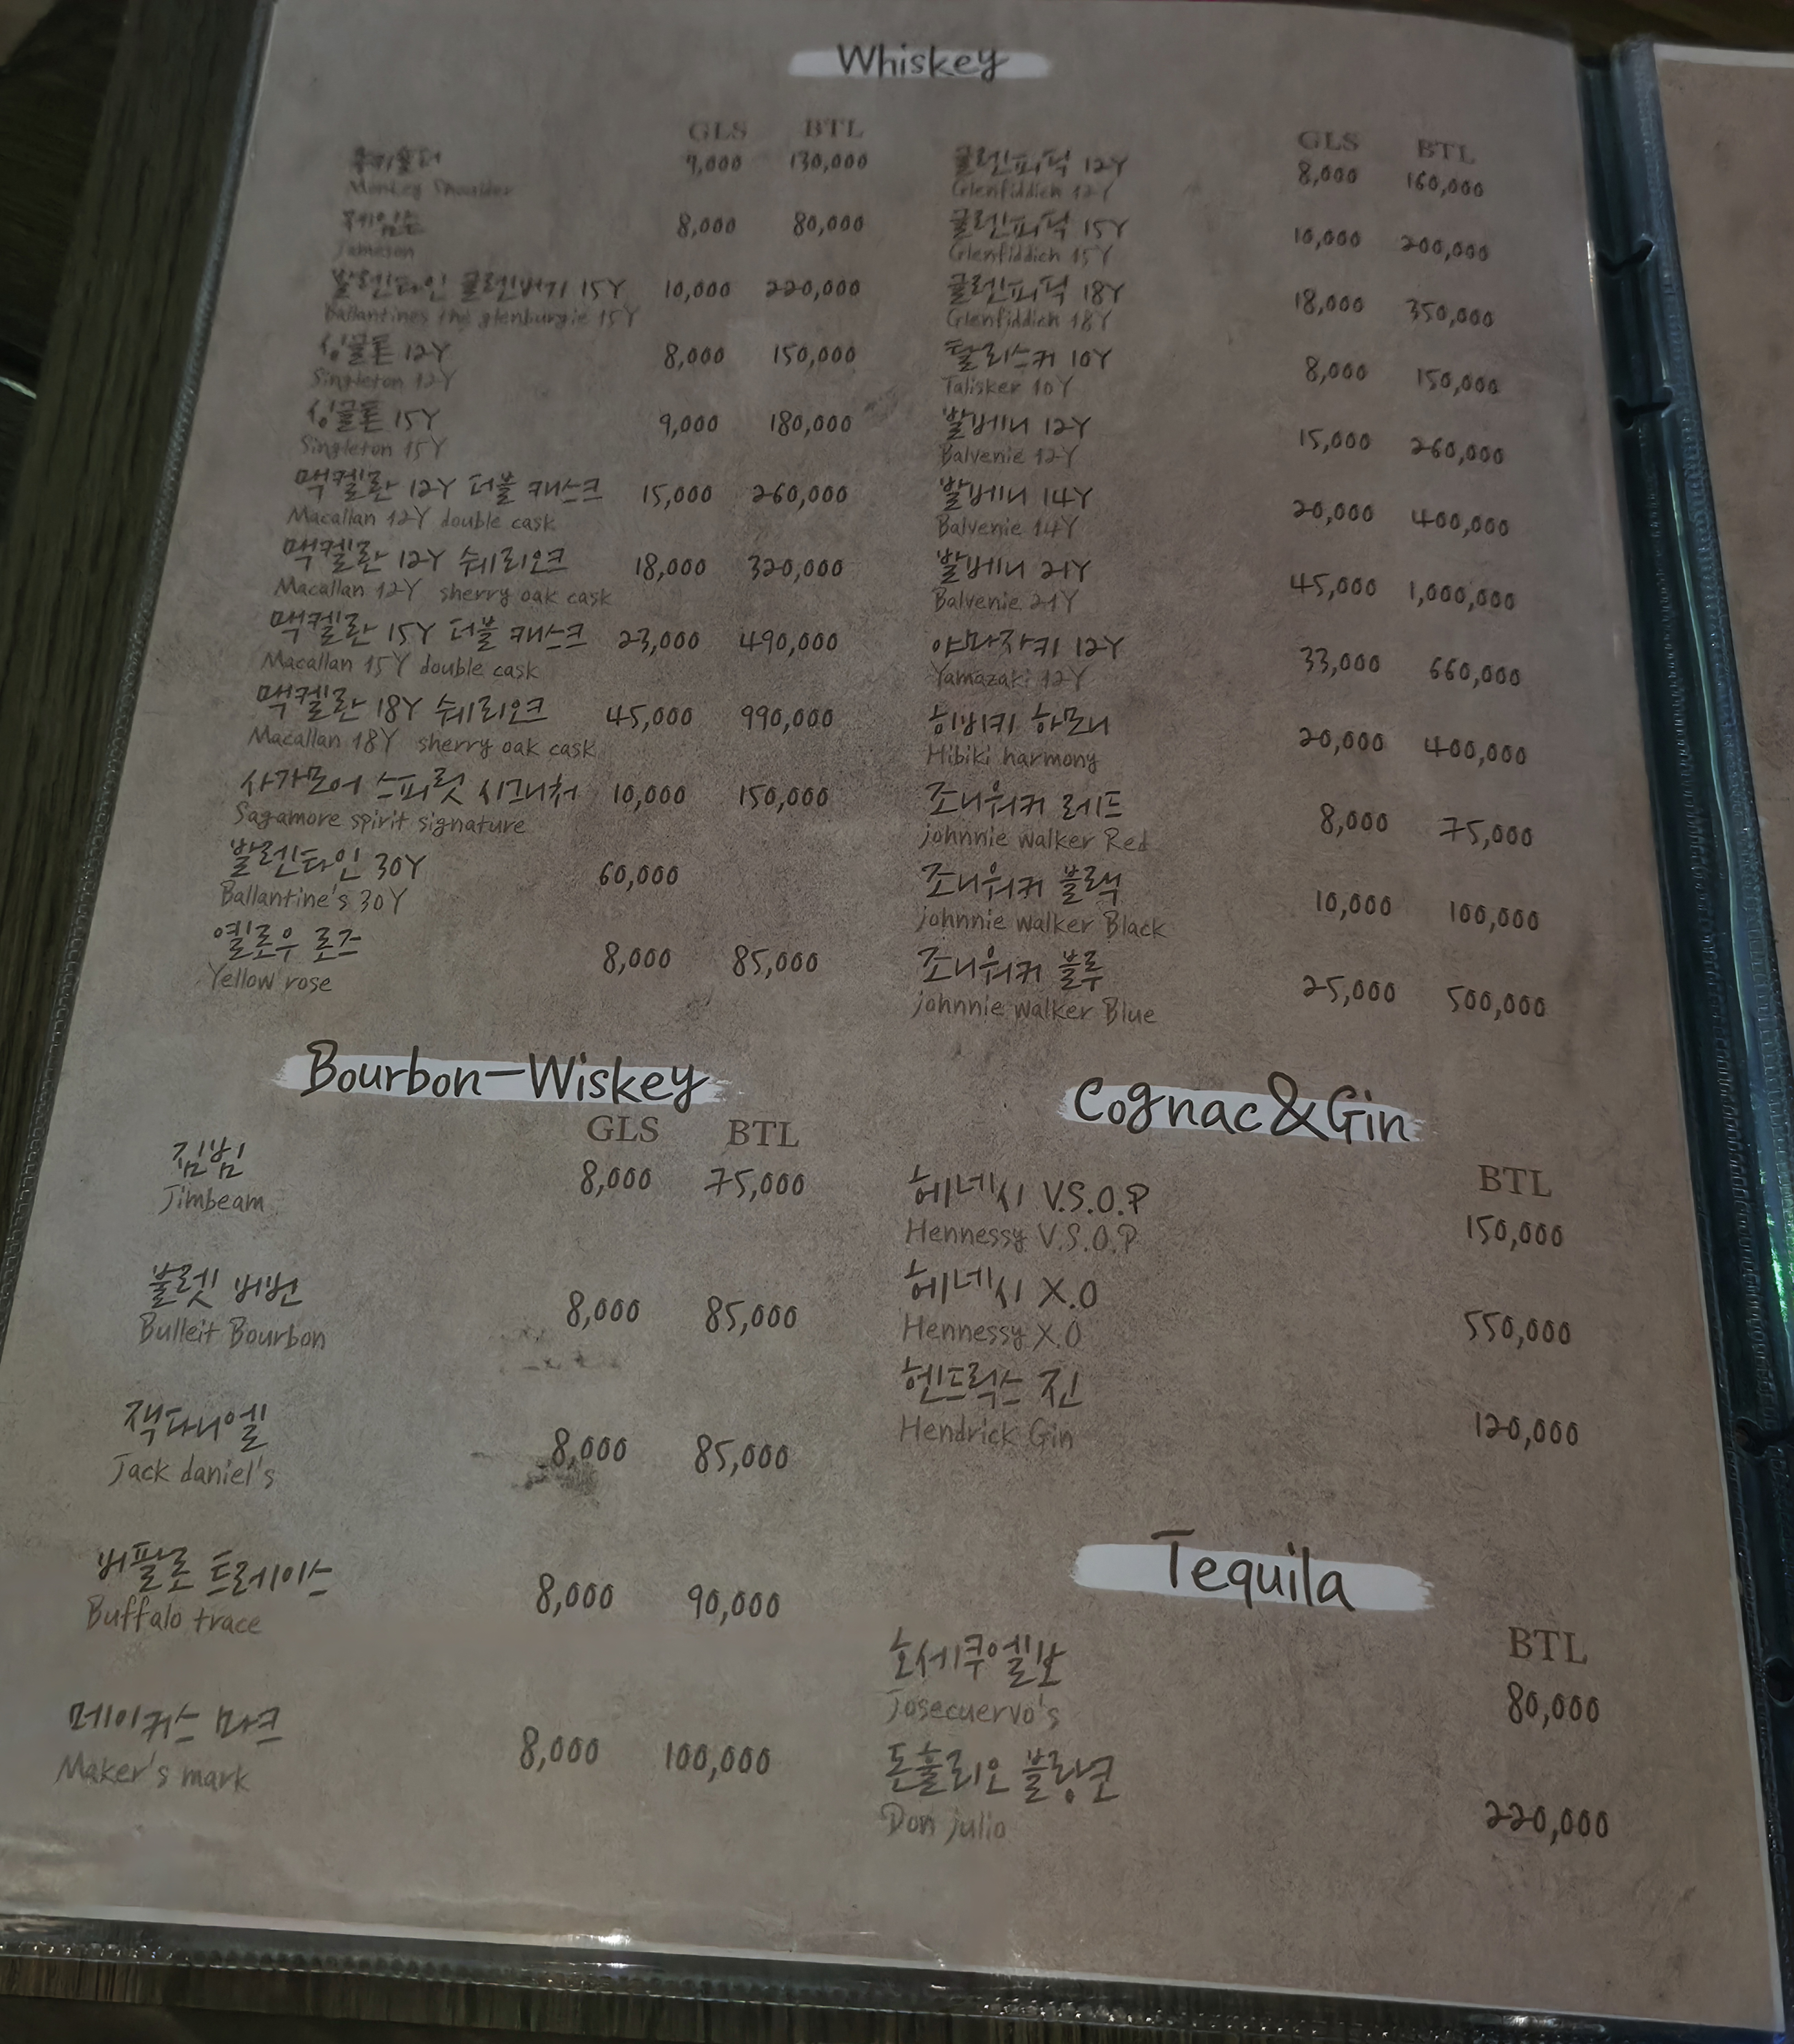 Whiskey
GLS BTL
몽키숄더 9,000 130,000
Monkey Shoulder
제임슨 8,000 80,000
Jameson
발렌타인 글렌버기 15Y 10,000 220,000
Ballantines the glenburgie 15Y
싱글톤 12Y 8,000 150,000
Singleton 12Y
싱글톤 15Y 9,000 180,000
Singleton 15Y
맥켈란 12Y 더블 캐스크 15,000 260,000
Macallan 12Y double cask
맥켈란 12Y 쉐리오크 18,000 320,000
Macallan 12Y sherry oak cask
맥켈란 15Y 더블 캐스크 23,000 490,000
Macallan 15Y double cask
맥켈란 18Y 쉐리오크 45,000 990,000
Macallan 18Y sherry oak cask
사가모어 스피릿 시그니처 10,000 150,000
Sagamore spirit signature
발렌타인 30Y 60,000
Ballantine's 30Y
옐로우 로즈 8,000 85,000
Yellow rose
GLS BTL
글렌피딕 12Y 8,000 160,000
Glenfiddich 12Y
글렌피딕 15Y 10,000 200,000
Glenfiddich 15Y
글렌피딕 18Y 18,000 350,000
Glenfiddich 18Y
탈리스커 10Y 8,000 150,000
Talisker 10Y
발베니 12Y 15,000 260,000
Balvenie 12Y
발베니 14Y 20,000 400,000
Balvenie 14Y
발베니 21Y 45,000 1,000,000
Balvenie 21Y
야마자키 12Y 33,000 660,000
Yamazaki 12Y
히비키 하모니 20,000 400,000
Hibiki harmony
조니워커 레드 8,000 75,000
johnnie walker Red
조니워커 블랙 10,000 100,000
johnnie walker Black
조니워커 블루 25,000 500,000
johnnie walker Blue
Bourbon-Wiskey
GLS BTL
짐빔 8,000 75,000
Jimbeam
불렛 버번 8,000 85,000
Bulleit Bourbon
잭다니엘 8,000 85,000
Jack daniel's
버팔로 트레이스 8,000 90,000
Buffalo trace
메이커스 마크 8,000 100,000
Maker's mark
Cognac&Gin
BTL
헤네시 V.S.O.P 150,000
Hennessy V.S.O.P
헤네시 X.O 550,000
Hennessy X.O
헨드릭스 진 120,000
Hendrick Gin
Tequila
BTL
호세쿠엘보 80,000
Josecuervo's
돈훌리오 블랑코 220,000
Don julio